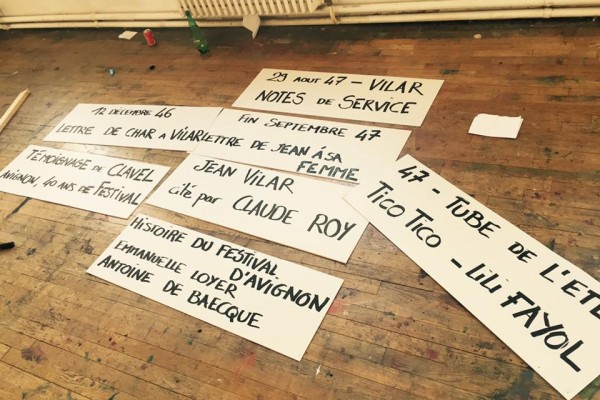 29 AOUT 47 - VILAR
NOTES DE SERVICE
12 DÉCEMBRE 46
LETTRE DE CHAR A VILAR
FIN SEPTEMBRE 47
LETTRE DE JEAN À SA
FEMME
TÉMOIGNAGE DE CLAVEL
AVIGNON, 40 ANS DE FESTIVAL
JEAN VILAR
CITÉ par CLAUDE ROY
HISTOIRE DU FESTIVAL
D'AVIGNON
EMMANUELLE LOYER
ANTOINE DE BAECQUE
47 - TUBE DE L'ETE
TICO TICO - LILI FAYOL